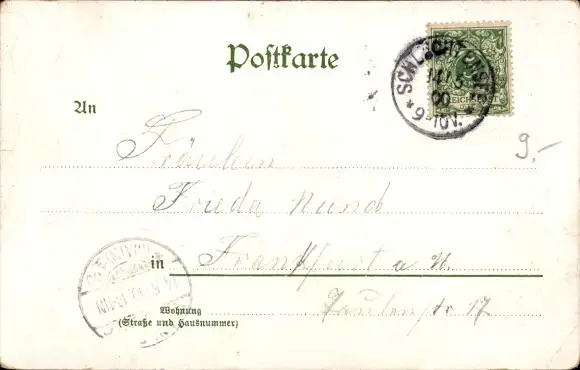 Postkarte
SCHLACHTENSEE
14/5
00
* 9-10V. *
REICHSPOST
9.-
An
Fräulein
Frieda Mund
in Frankfurt a M.
Wohnung
(Straße und Hausnummer)
17